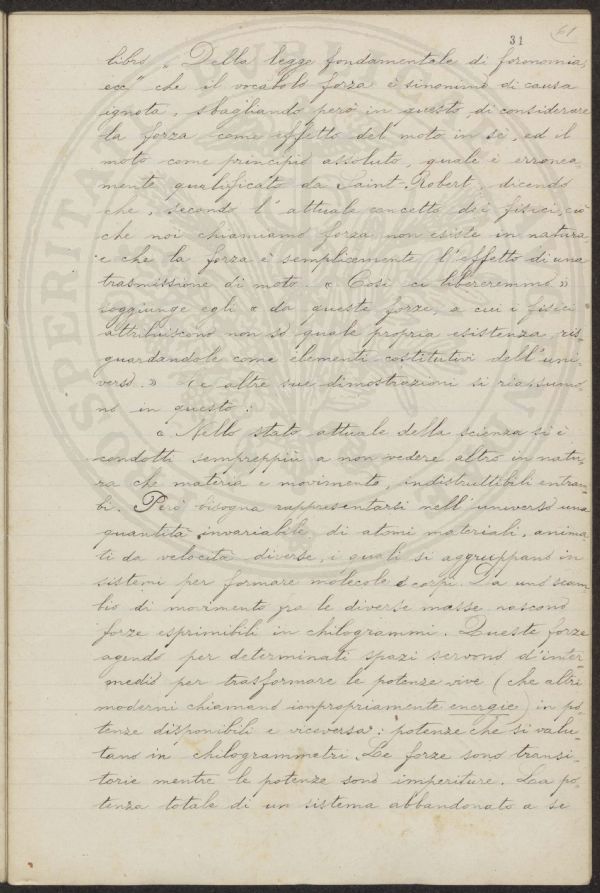 31 61
libro „ Della legge fondamentale di foronomia,
ecc" che il vocabolo forza è sinonimo di causa
ignota, sbagliando però in questo, di considerare
la forza come effetto del moto in sè, ed il
moto come principio assoluto, quale è erronea-
mente qualificato da Saint-Robert, dicendo
che, secondo l'attuale concetto dei fisici, ciò
che noi chiamiamo forza non esiste in natura
e che la forza è semplicemente l'effetto di una
trasmissione di moto. « Così ci libereremmo »
soggiunge egli « da queste forze, a cui i fisici
attribuiscono non so quale propria esistenza, ris-
guardandole come elementi costitutivi dell'uni-
verso. » Le altre sue dimostrazioni si riassumo-
no in questo:
« Nello stato attuale della scienza si è
condotti sempreppiù a non vedere altro in natu-
ra che materia e movimento, indistruttibili entram-
bi. Però bisogna rappresentarsi nell'universo una
quantità invariabile di atomi materiali, anima-
ti da velocità diverse, i quali si aggruppano in
sistemi per formare molecole e corpi. Da uno scam-
bio di movimento fra le diverse masse nascono
forze esprimibili in chilogrammi. Queste forze
agendo per determinati spazi servono d'inter-
medio per trasformare le potenze vive (che altri
moderni chiamano impropriamente energie) in po-
tenze disponibili e viceversa: potenze che si valu-
tano in chilogrammetri. Le forze sono transi-
torie mentre le potenze sono imperiture. La po-
tenza totale di un sistema abbandonato a se